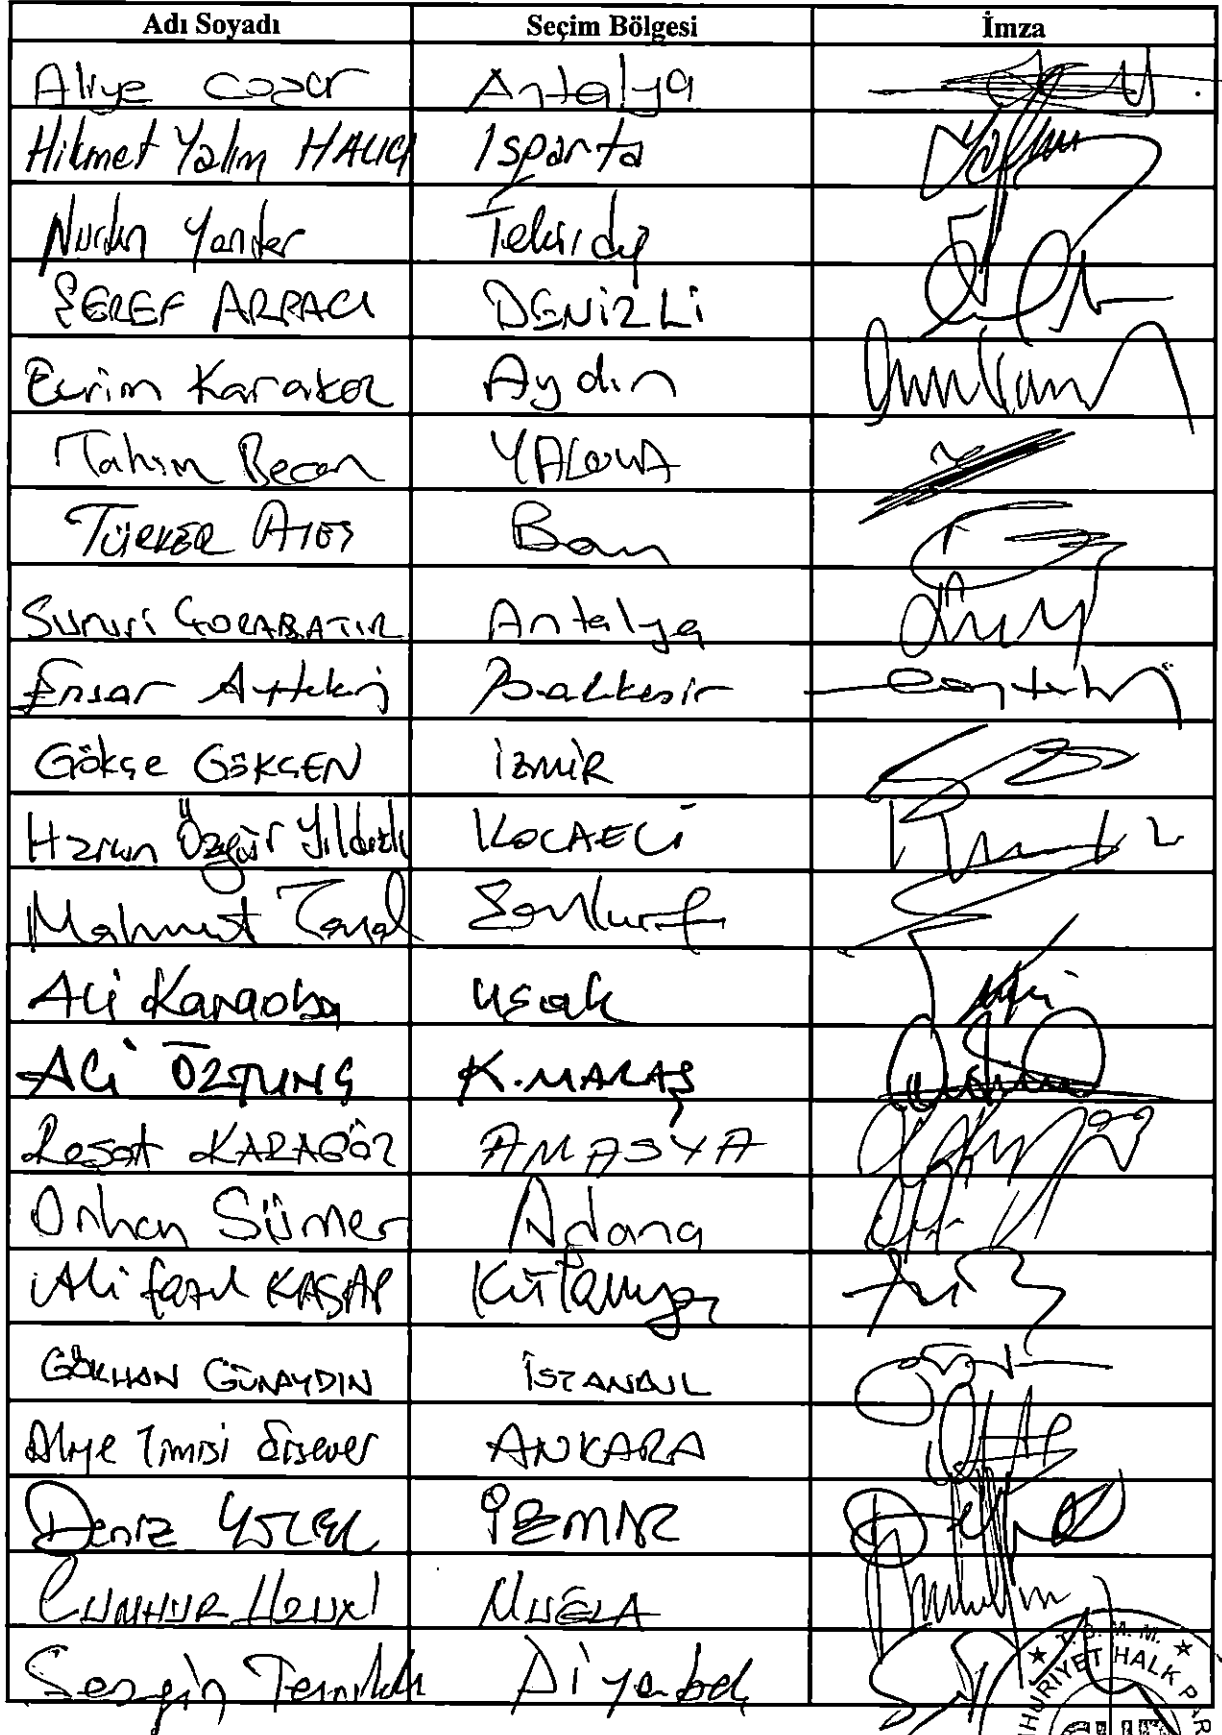 Adı Soyadı Seçim Bölgesi İmza
Aliye Coşar Antalya
Hikmet Yalım HALICI Isparta
Nurten Yontar Tekirdağ
ŞEREF ARPACI DENİZLİ
Evrim Karakoz Aydın
Tahsin Becan YALOVA
TÜRKER ATEŞ Bolu
Sururi ÇORABATIR Antalya
Ensar Aytekin Balıkesir
Gökçe GÖKÇEN İZMİR
Harun Özgür Yıldızlı KOCAELİ
Mahmut Tanal Şanlıurfa
Ali Karaoba Uşak
Ali ÖZTUNÇ K.MARAŞ
Reşat KARAGÖZ AMASYA
Orhan Sümer Adana
Ali Fazıl KASAP Kütahya
GÖKHAN GÜNAYDIN İSTANBUL
Aliye Timisi Ersever ANKARA
Deniz YÜCEL İZMİR
CUMHUR UZUN MUĞLA
Sezgin Tanrıkulu Diyarbak
T.B.M.M.
CHP